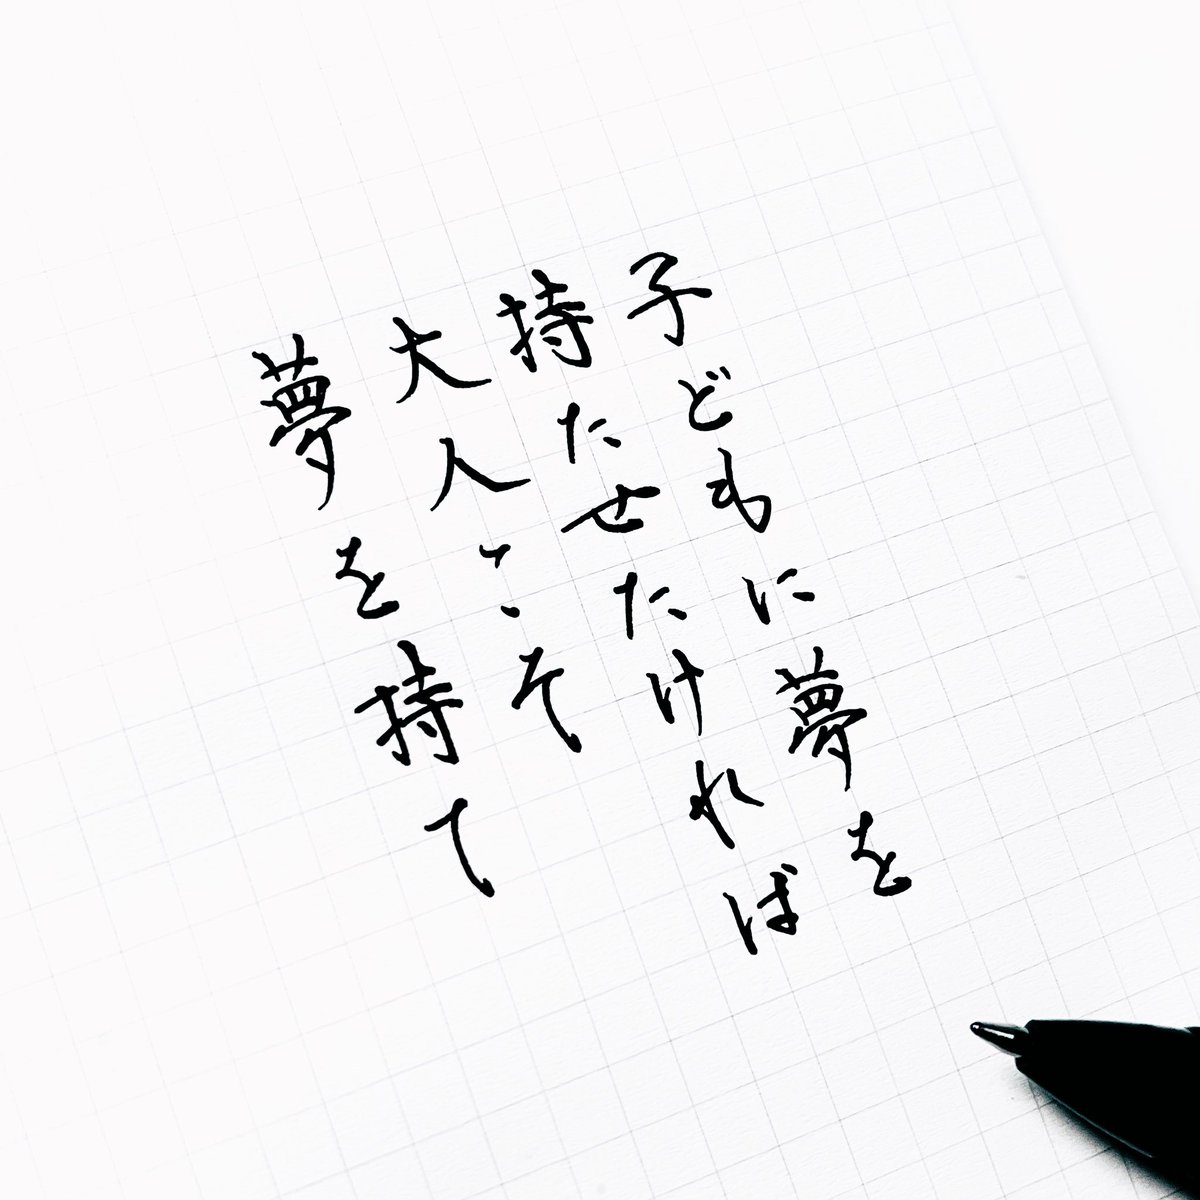 子どもに夢を
持たせたければ
大人こそ
夢を持て